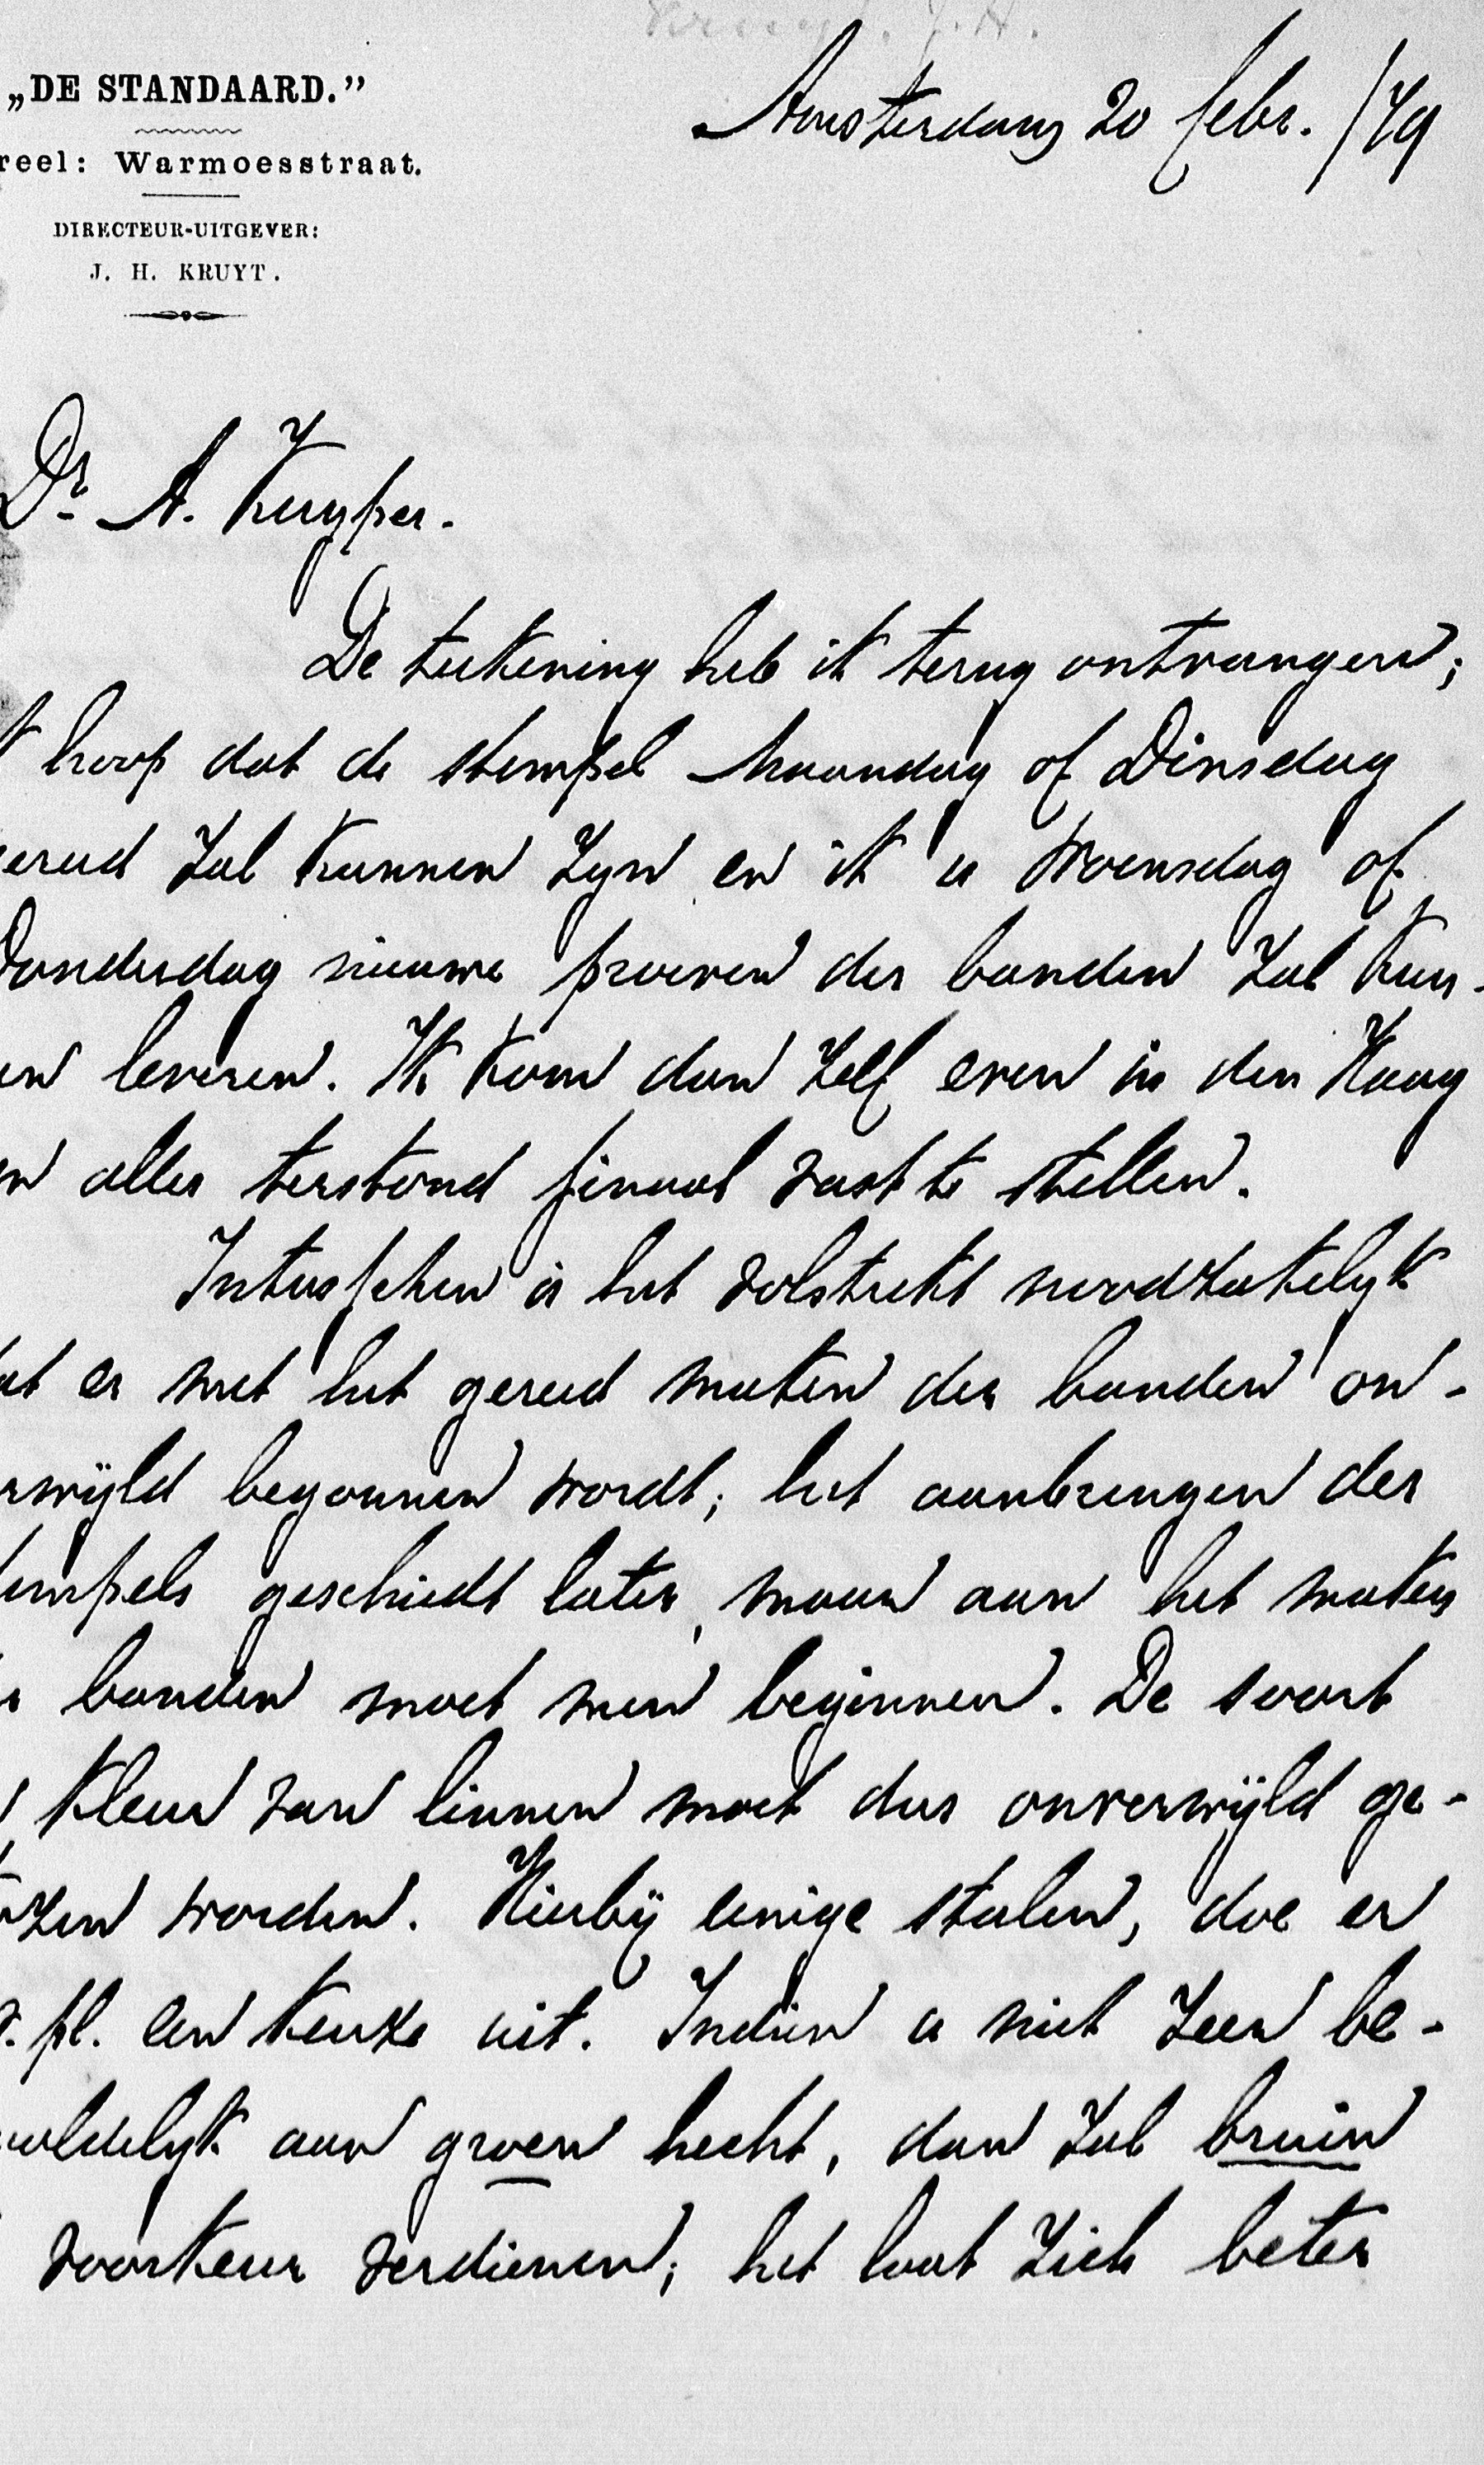 Kruyt. J. H.
„DE STANDAARD.”
Amsterdam 20 febr. /79
reel: Warmoesstraat.
DIRECTEUR-UITGEVER:
J. H. KRUYT.
Dr. A. Kuyper.
De teekening heb ik terug ontvangen;
k hoop dat de stempel Maandag of Dinsdag
ereed zal kunnen zyn en ik u Woensdag of
Donderdag nieuwe proeven der banden zal kun-
en leveren. Ik kom dan zelf even in den Haag
m alles terstond finaal vast te stellen.
Intusschen is het volstrekt noodzakelyk
at er met het gereed maken der banden on-
erwijld begonnen wordt; het aanbrengen der
empels geschiedt later, maar aan het maken
r banden moet men beginnen. De soort
kleur van linnen moet dus onverwijld ge-
ozen worden. Hierbij eenige stalen, doe er
s. pl. een keuze uit. Indien u niet zeer be-
oeldelyk aan groen hecht, dan zal bruin
voorkeur verdienen; het laat zich beter